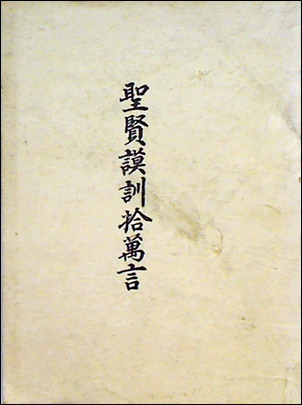 聖賢謨訓拾萬言